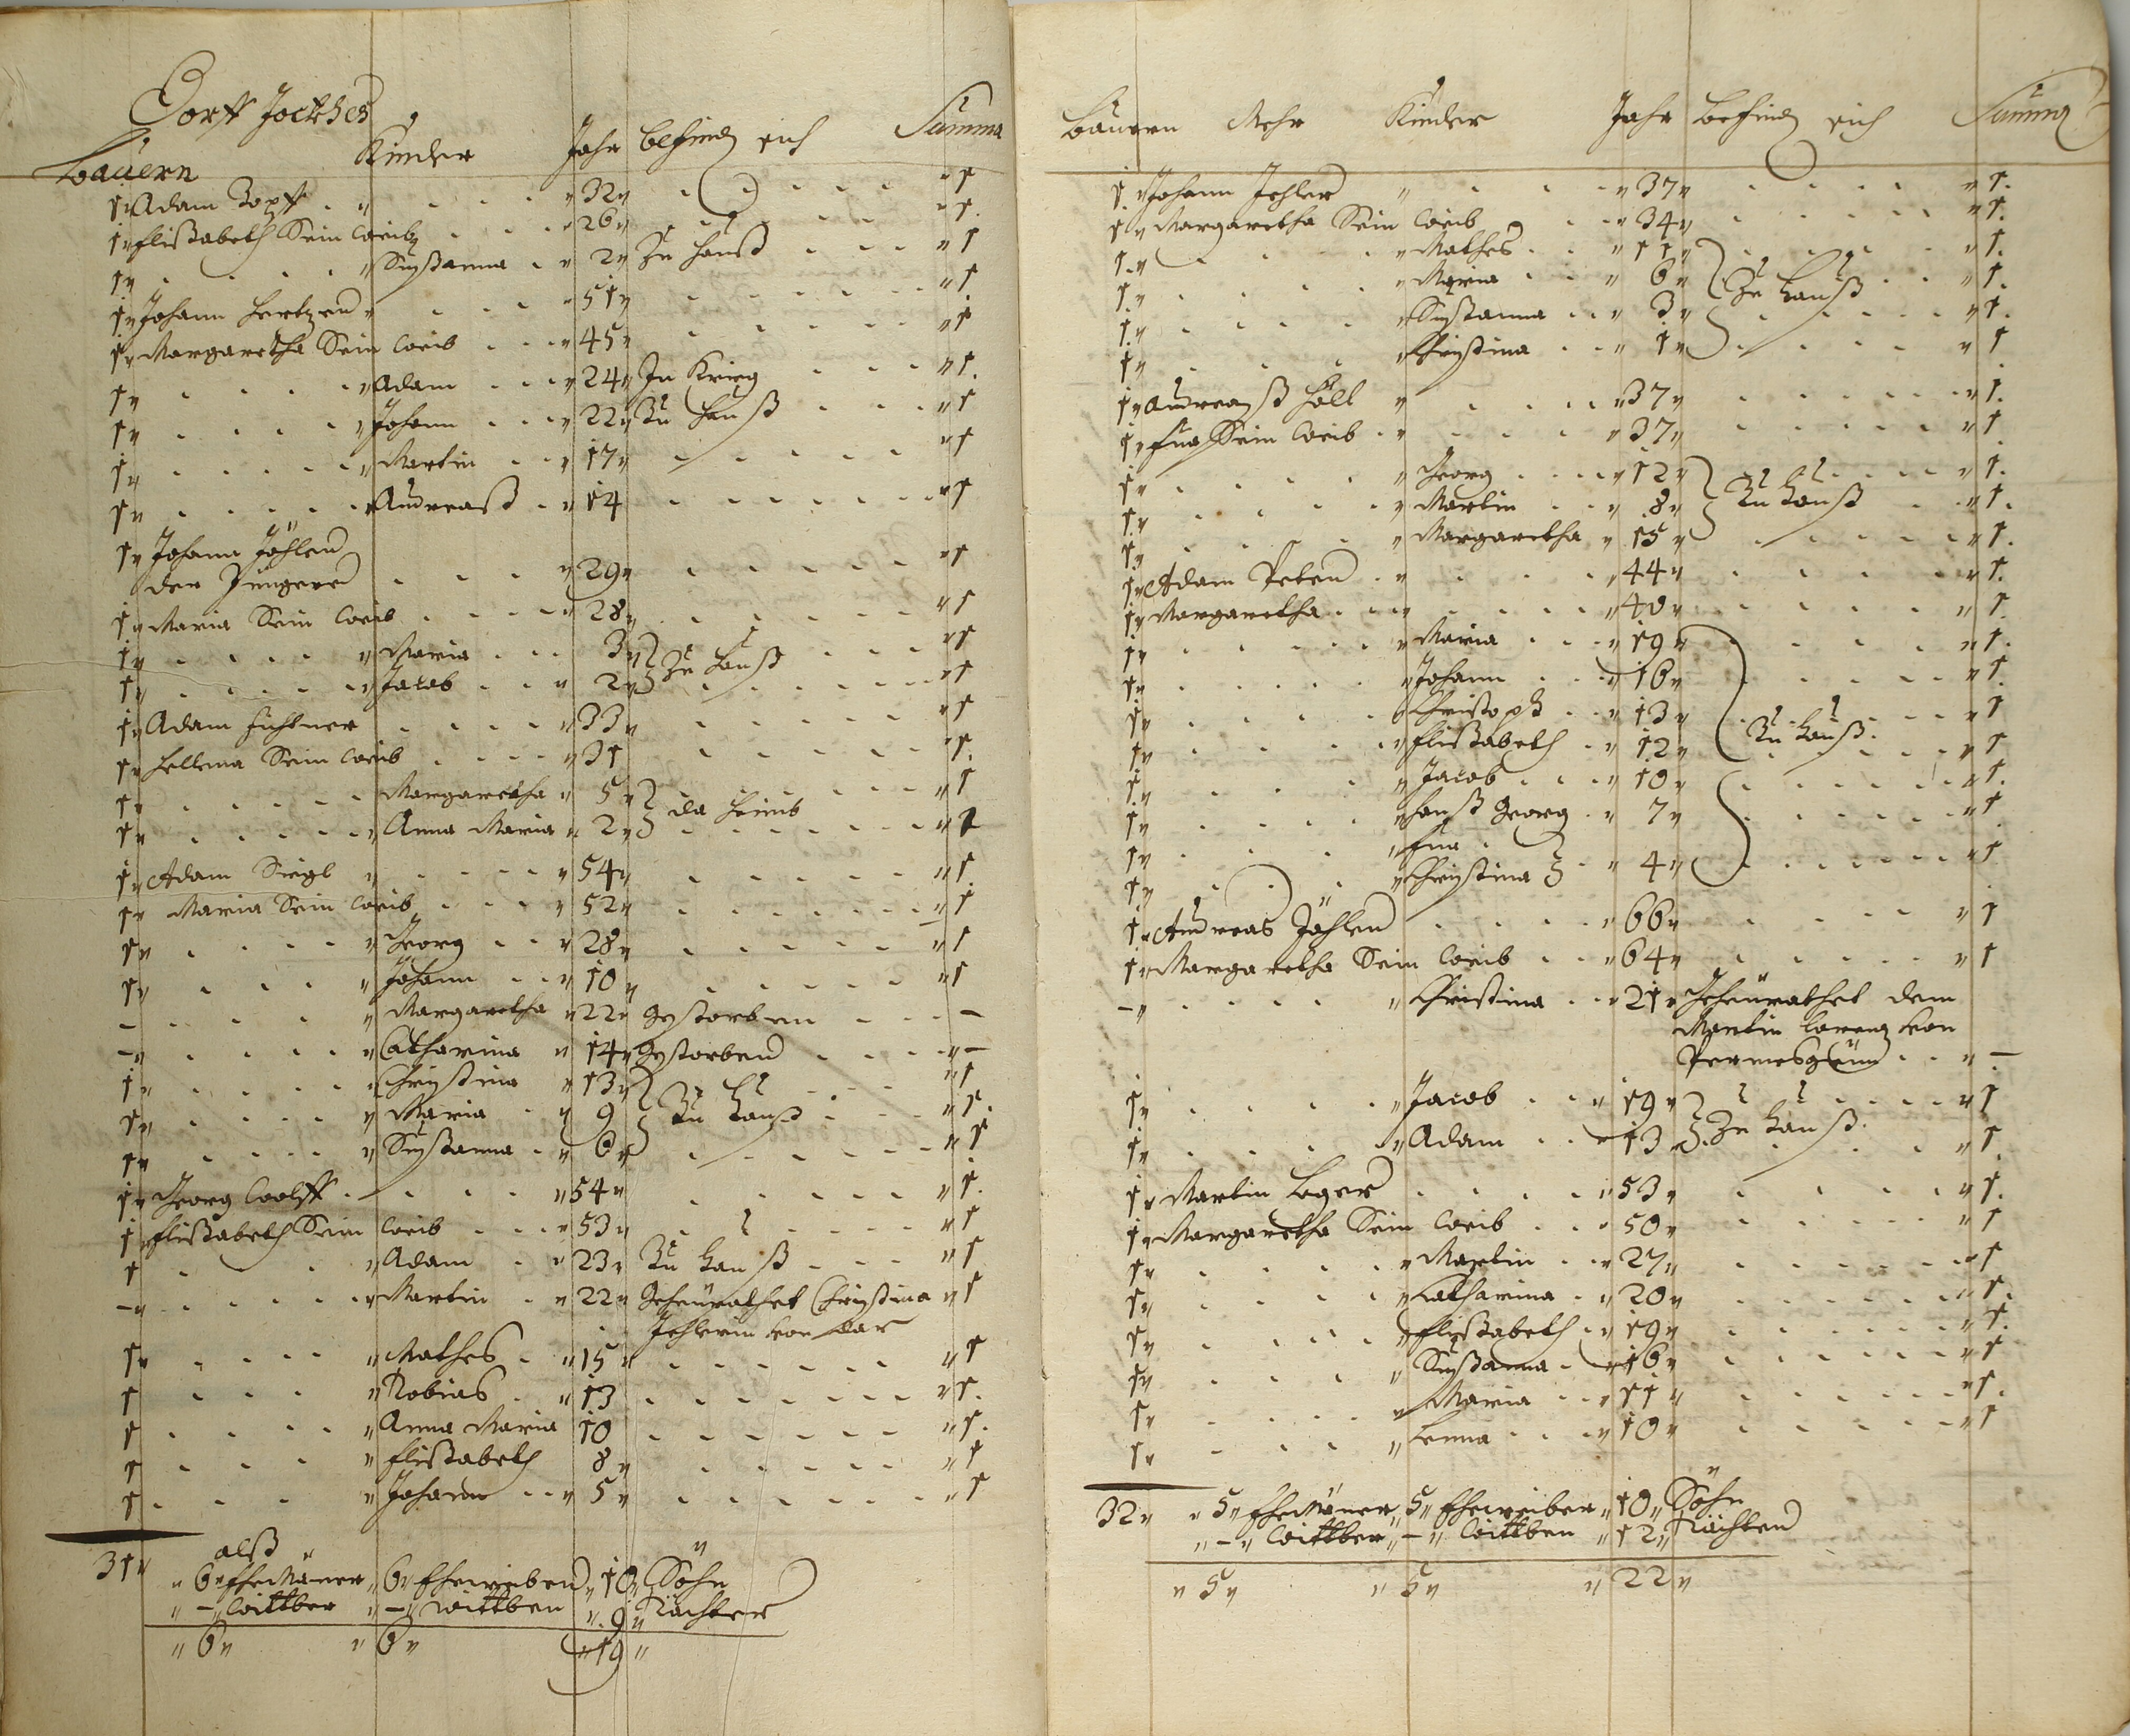 Dorff Jockhes
Bauern Kinder Jahr befind sich Summa
1 Adam Zopff 32 1
1 Elisabeth Sein Weib 26 1
1 Susanna 2 Zu Hauß 1
1 Johann Hertzen 51 1
1 Margaretha Sein Weib 45 1
1 Adam 24 In Krieg 1
1 Johann 22 Zu Hauß 1
1 Martin 17 1
1 Andreaß 14 1
1 Johann Jöhlen
der Jüngere 29 1
1 Maria Sein Weib 28 1
1 Maria 3 Zu Hauß 1
1 Jacob 2 1
1 Adam Fichtner 33 1
1 Hellena Sein Weib 31 1
1 Margaretha 5 1
1 Anna Maria 2 da Heimb 1
1 Adam Siegl 54 1
1 Maria Sein Weib 52 1
1 Georg 28 1
1 Johann 10 1
– Margaretha 22 Gestorben –
– Catharina 14 Gestorben –
1 Christina 13 1
1 Maria 9 Zu Hauß 1
1 Susanna 6 1
1 Georg Wolff 54 1
1 Elisabeth Sein Weib 53 1
1 Adam 23 Zu Hauß 1
– Martin 22 Geheurathet Christina 1
Jehlerin von dar
1 Mathes 15 1
1 Tobias 13 1
1 Anna Maria 10 1
1 Elisabeth 8 1
1 Johann 5 1
31 alß
6 EheMäner 6 Eheweiber 10 Söhn
– Wittber – Wittben 9 Töchter
6 6 19
Bauern Mehr Kinder Jahr befind sich Summa
1 Johann Jehler 37 1
1 Margaretha Sein Weib 34 1
1 Mathes 11 1
1 Maria 6 Zu Hauß 1
1 Susanna 3 1
1 Christina 1 1
1 Andreaß Höll 37 1
1 Eua Sein Weib 37 1
1 Georg 12 1
1 Martin 8 Zu Hauß 1
1 Margaretha 15 1
1 Adam Peten 44 1
1 Margaretha 40 1
1 Maria 19 1
1 Johann 16 1
1 Christoph 13 1
1 Elisabeth 12 Zu Hauß 1
1 Jacob 10 1
1 Hanß Georg 7 1
1 Eua
1 Christina 4 1
1 Andreas Jöhlen 66 1
1 Margaretha Sein Weib 64 1
– Christina 21 Geheurathet dem
Martin Lorenz von
Permesgrün –
1 Jacob 19 1
1 Adam 13 Zu Hauß 1
1 Martin Loger 53 1
1 Margaretha Sein Weib 50 1
1 Martin 27 1
1 Catharina 20 1
1 Elisabeth 19 1
1 Susanna 16 1
1 Maria 11 1
1 Lenna 10 1
32 5 EheMäner 5 Eheweiber 10 Söhn
– Wittber – Wittben 12 Töchten
5 5 22